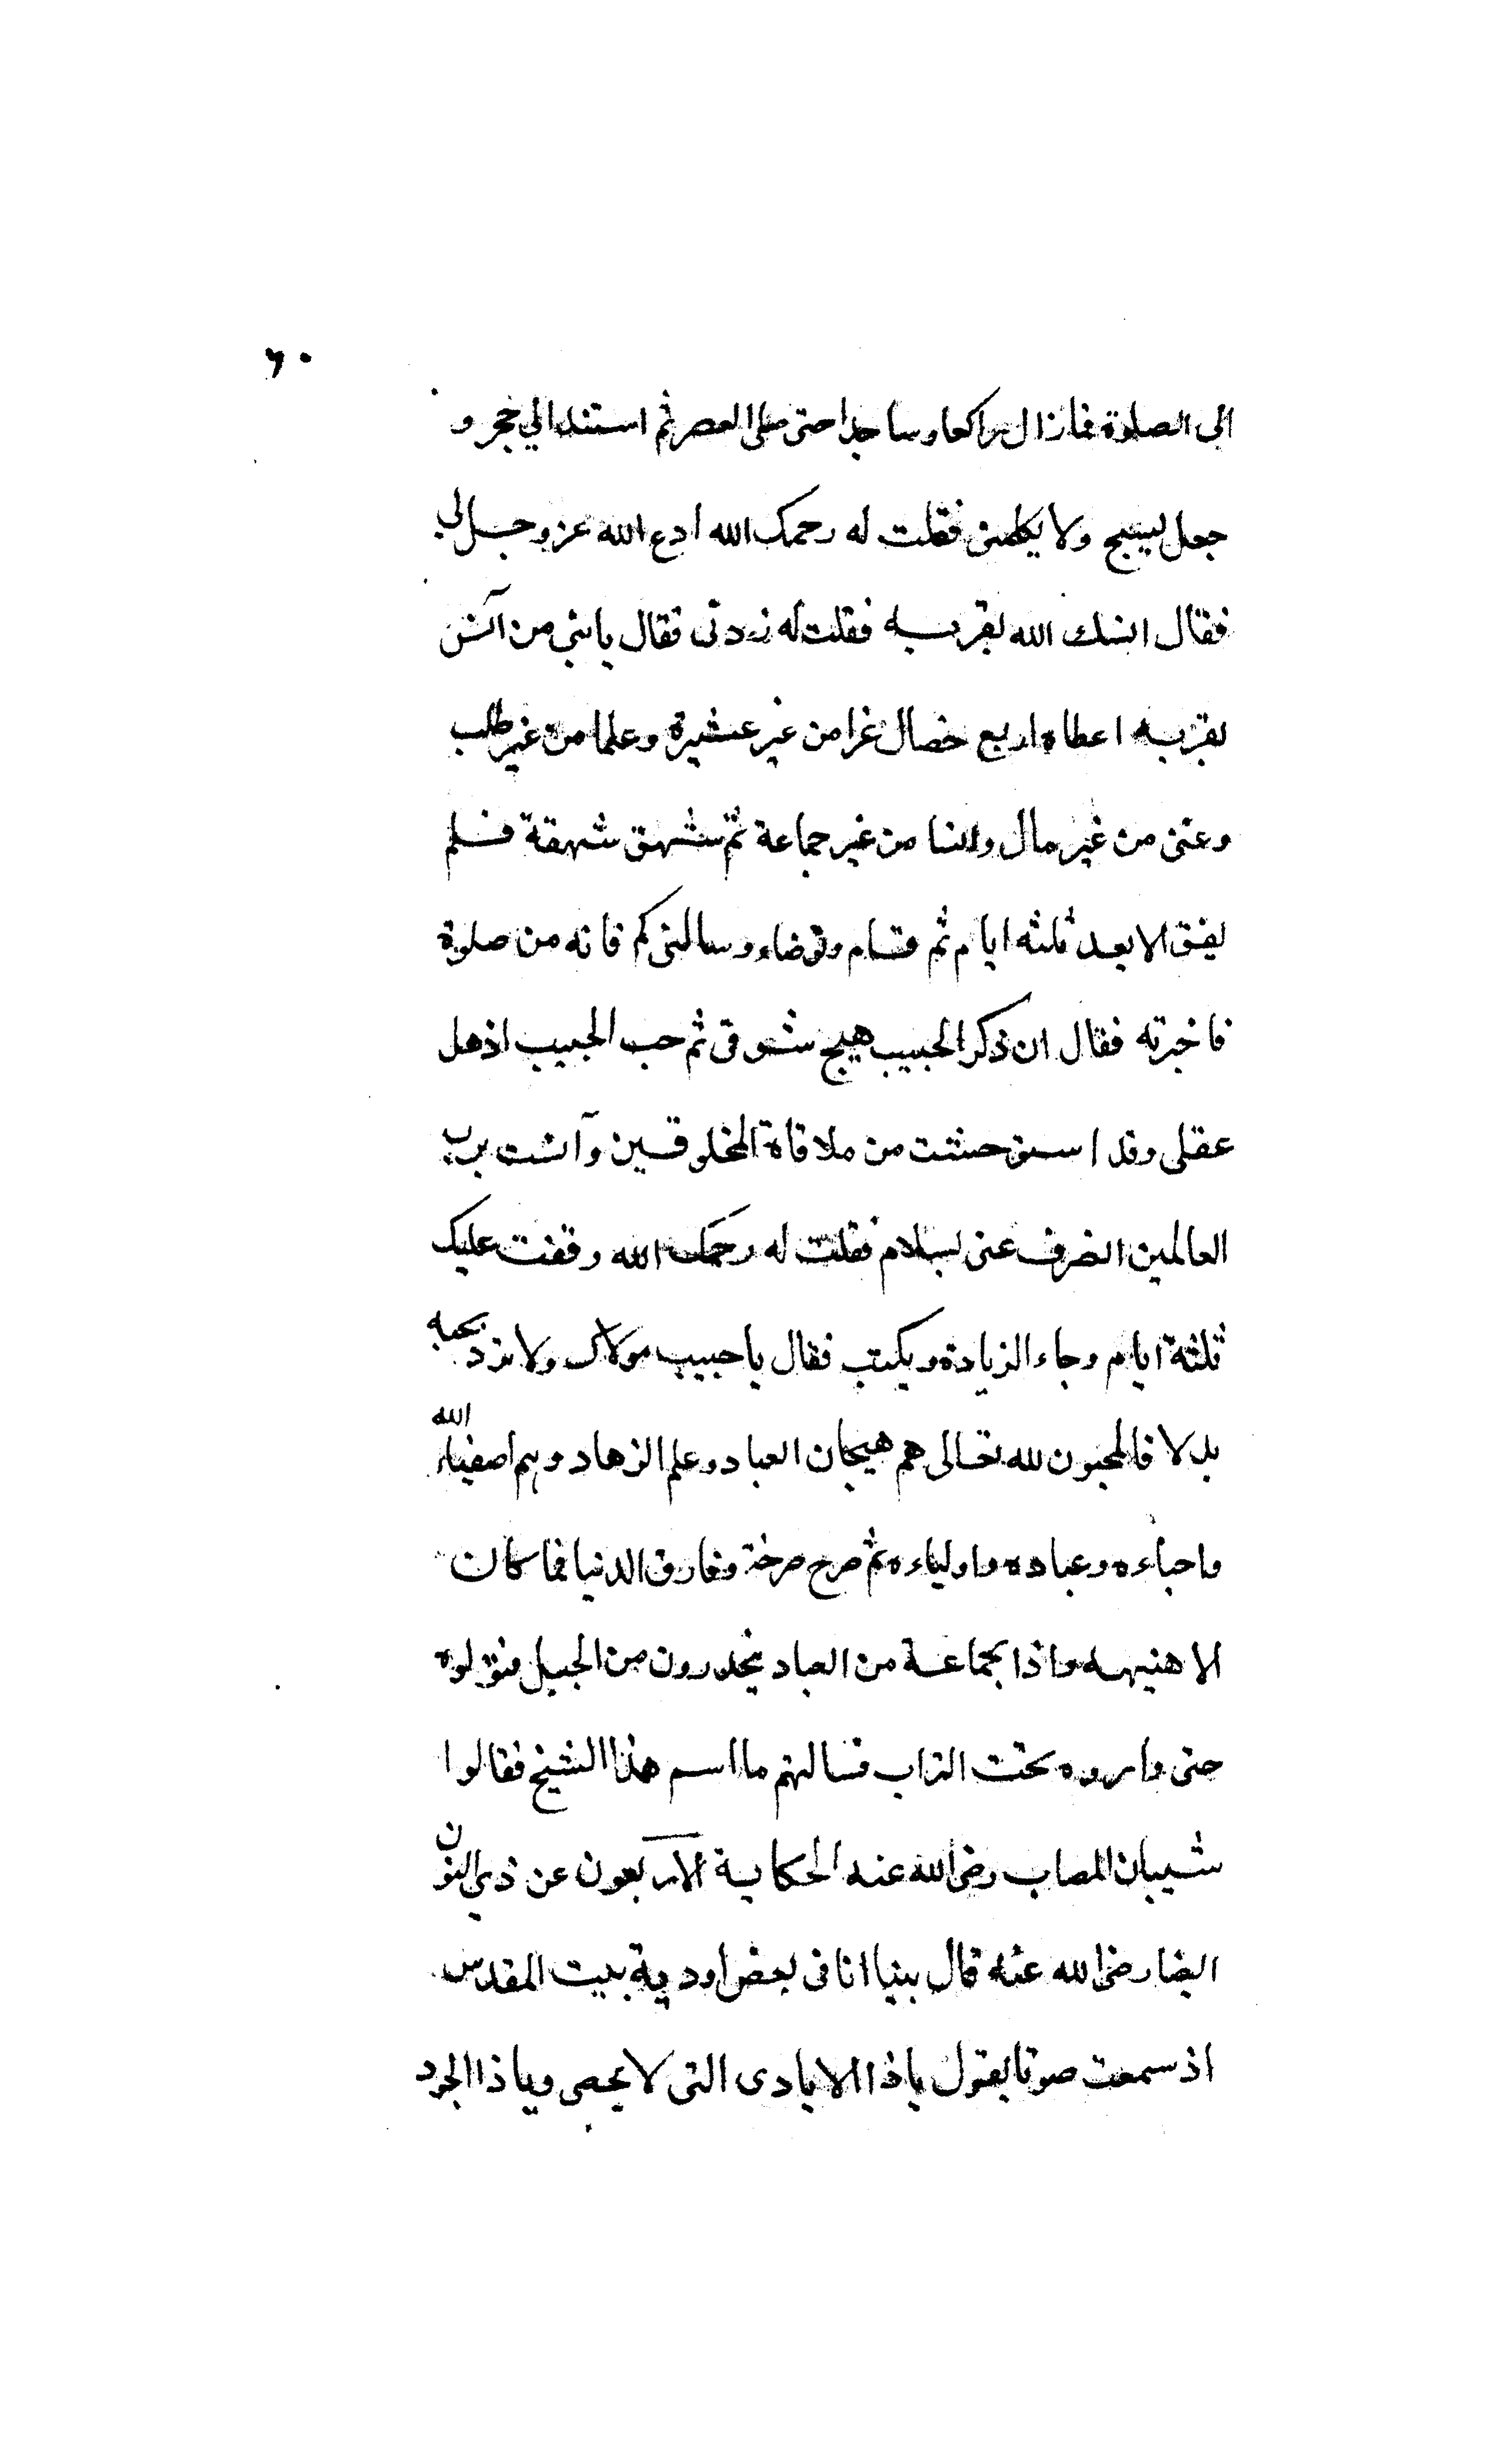 ٦٠
الى الصلوة فما زال راكعا وساجدا حتى صلى العصر ثم استند الي حجر و
جعل يسبح ولا يكلمنى فقلت له رحمك الله ادع الله عز وجل لى
فقال انسك الله بقربه فقلت له زدنى فقال يا بنى من آنس
بقربه اعطاه اربع خصال عزا من غير عشيرة وعلما من غير طلب
وغنى من غير مال وانسا من غير جماعة ثم شهق شهقة فلم
يفق الا بعد ثلثه ايام ثم قام وتوضاء وسالنى كم فاته من صلوة
فاخبرته فقال ان ذكر الحبيب هيج شوقى ثم حب الحبيب اذهل
عقلى وقد استوحشت من ملاقاة المخلوقين وآنست برب
العالمين انصرف عنى بسلام فقلت له رحمك الله وقفت عليك
ثلثة ايام رجاء الزيادة وبكيت فقال يا حبيب مولاك ولا ترد بحبه
بدلا فالمحبون لله تعالى هم هيجان العباد وعلم الزهاد وهم اصفياء الله
واحباءه وعباده واولياءه ثم صرخ صرخة وفارق الدنيا فما كان
الا هنيهه واذا بجماعة من العباد ينحدرون من الجبل فتولوه
حتى واروه تحت التراب فسالتهم ما اسم هذا الشيخ فقالوا
شيبان المصاب رضى الله عنه الحكاية الاربعون عن ذي النون
ايضا رضى الله عنه قال بينا انا فى بعض اودية بيت المقدس
اذ سمعت صوتا يقول يا ذا الايادى التى لا يحصى ويا ذا الجود